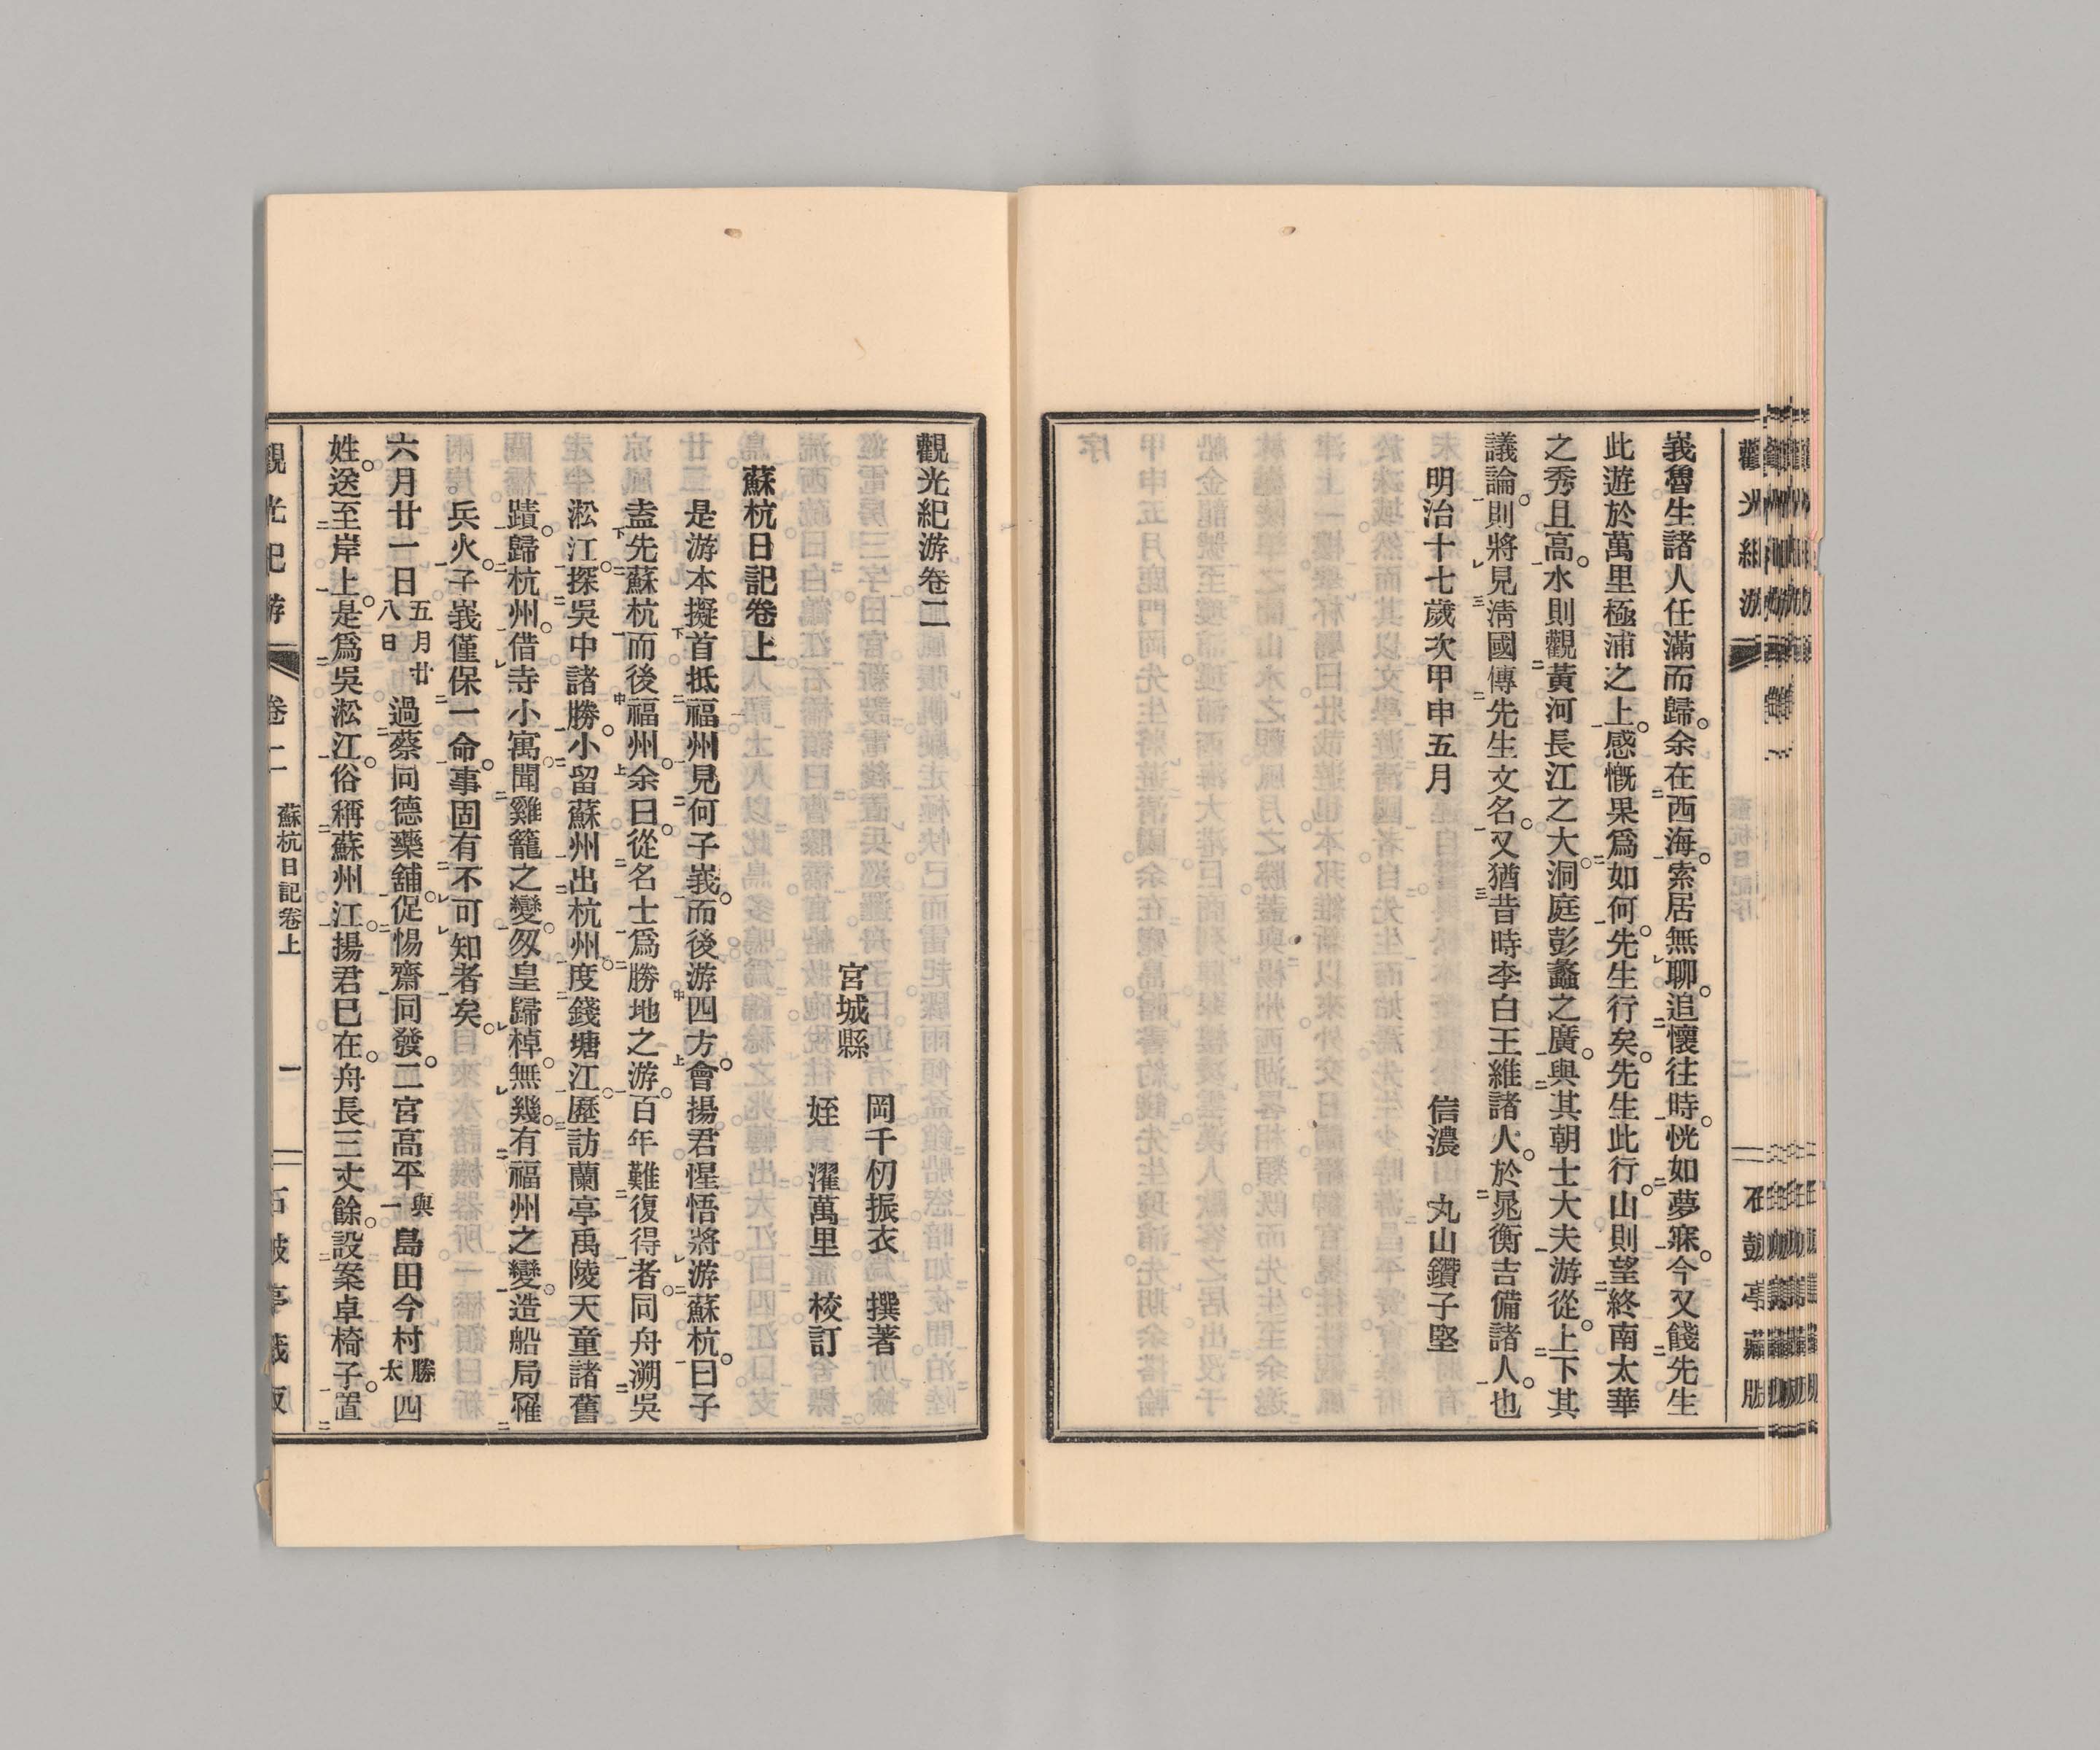 義魯生諸人任滿而歸。余在西海。索居無聊。追懷往時。恍如夢寐。今又餞先生
此遊於萬里極浦之上。感慨果爲如何。先生行矣。先生此行。山則望終南太華
之秀且高。水則觀黃河長江之大。洞庭彭蠡之廣。與其朝士大夫游從。上下其
議論。則將見淸國傳先生文名。又猶昔時李白王維諸人。於晁衡吉備諸人。也
明治十七歲次甲申五月
信濃 丸山鑽子堅
觀光紀游卷二
宮城縣
岡千仞振衣 撰著
姪 濯萬里 校訂
蘇杭日記卷上
是游本擬首抵福州見何子義。而後游四方。會揚君惺悟將游蘇杭。曰子
盍先蘇杭而後福州。余曰。從名士爲勝地之游。百年難復得者。同舟溯吳
淞江。探吳中諸勝。小留蘇州出杭州。度錢塘江。歷訪蘭亭禹陵天童諸舊
蹟。歸杭州。借寺小寓。聞雞籠之變。匆皇歸棹。無幾。有福州之變。造船局罹
兵火。子義僅保一命。事固有不可知者矣。
六月廿一日 五月廿八日 過蔡同德藥舖。促惕齋同發。二宮高平與島田今村勝太四
姓。送至岸上。是爲吳淞江。俗稱蘇州江。揚君已在。舟長三丈餘。設案卓椅子。置
觀光紀游 卷二 蘇杭日記卷上 一